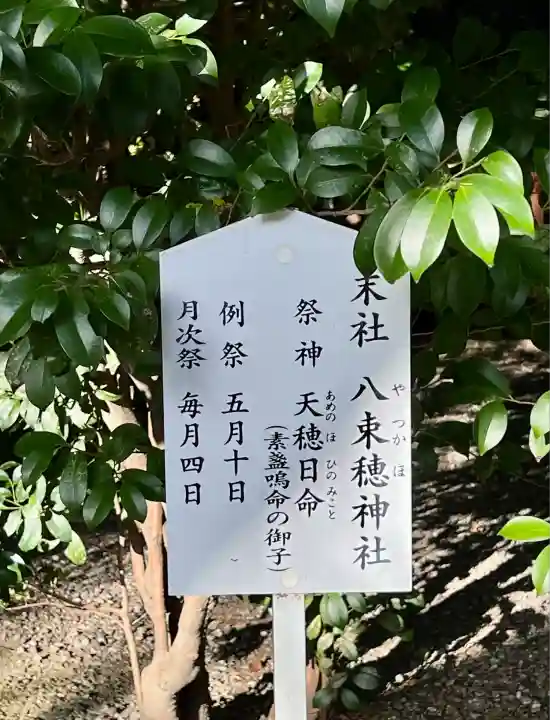 末社 八束穂神社
や つか ほ
祭神 天穂日命
あめの ほ ひの みこと
(素盞嗚命の御子)
例祭 五月十日
月次祭 毎月四日